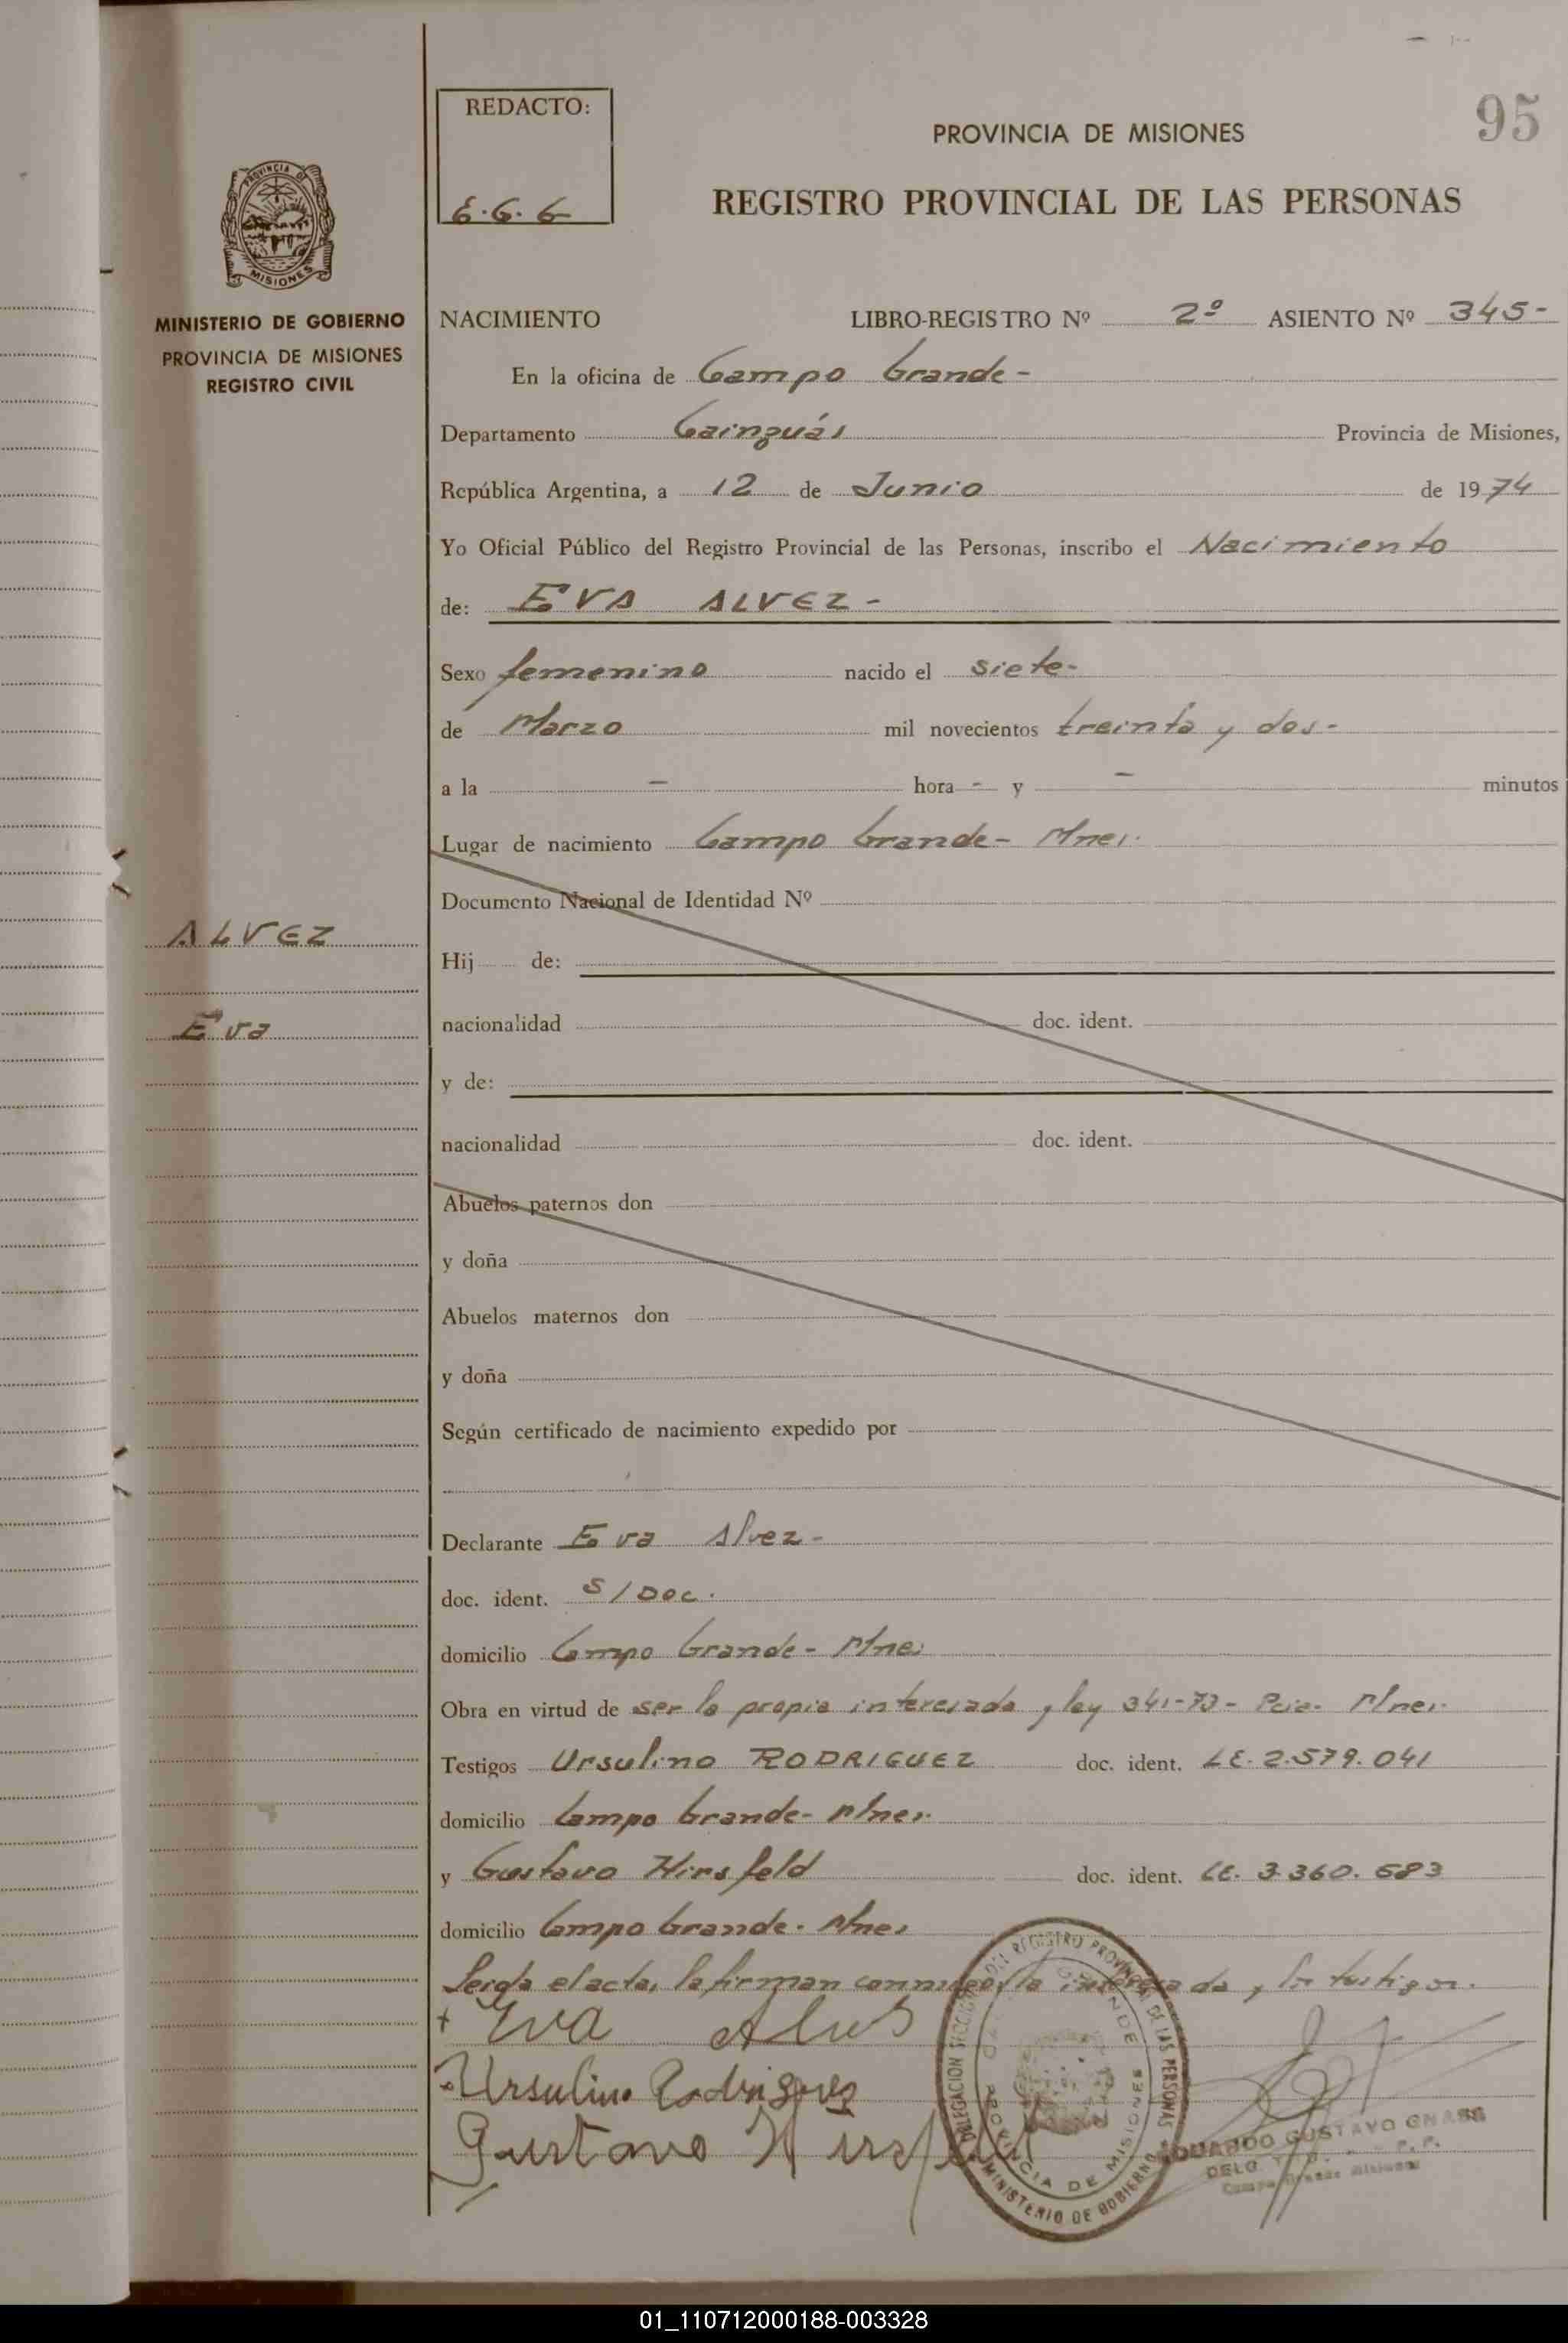 95
REDACTO:
E.G.G
PROVINCIA DE MISIONES
REGISTRO PROVINCIAL DE LAS PERSONAS
PROVINCIA DE
MISIONES
MINISTERIO DE GOBIERNO
PROVINCIA DE MISIONES
REGISTRO CIVIL
NACIMIENTO LIBRO-REGISTRO Nº 2º ASIENTO Nº 345-
En la oficina de Campo Grande-
Departamento Cainguás Provincia de Misiones,
República Argentina, a 12 de Junio de 1974
Yo Oficial Público del Registro Provincial de las Personas, inscribo el Nacimiento
de: EVA ALVEZ-
Sexo femenino nacido el siete-
de Marzo mil novecientos treinta y dos-
a la - hora - y - minutos
Lugar de nacimiento Campo Grande- Mnes.
Documento Nacional de Identidad Nº
ALVEZ
Hij de:
Eva
nacionalidad doc. ident.
y de:
nacionalidad doc. ident.
Abuelos paternos don
y doña
Abuelos maternos don
y doña
Según certificado de nacimiento expedido por
Declarante Eva Alvez-
doc. ident. S/Doc.
domicilio Campo Grande- Mnes
Obra en virtud de ser la propia interesada y ley 341-73- Pcia. Mnes.
Testigos Ursulino RODRIGUEZ doc. ident. LE. 2.579.041
domicilio Campo Grande- Mnes.
y Gustavo Hirsfeld doc. ident. LE. 3.360.683
domicilio Campo Grande- Mnes
Leida el acta, la firman conmigo, la interesada y los testigos.
+ Eva Alves
Ursulino Rodriguez
Gustavo Hirsfeld
DELEGACION SECCIONAL DEL REGISTRO PROVINCIAL DE LAS PERSONAS
MINISTERIO DE GOBIERNO
PROVINCIA DE MISIONES
EDUARDO GUSTAVO GNASS
DELG. R. P. P.
Campo Grande Misiones
01_110712000188-003328